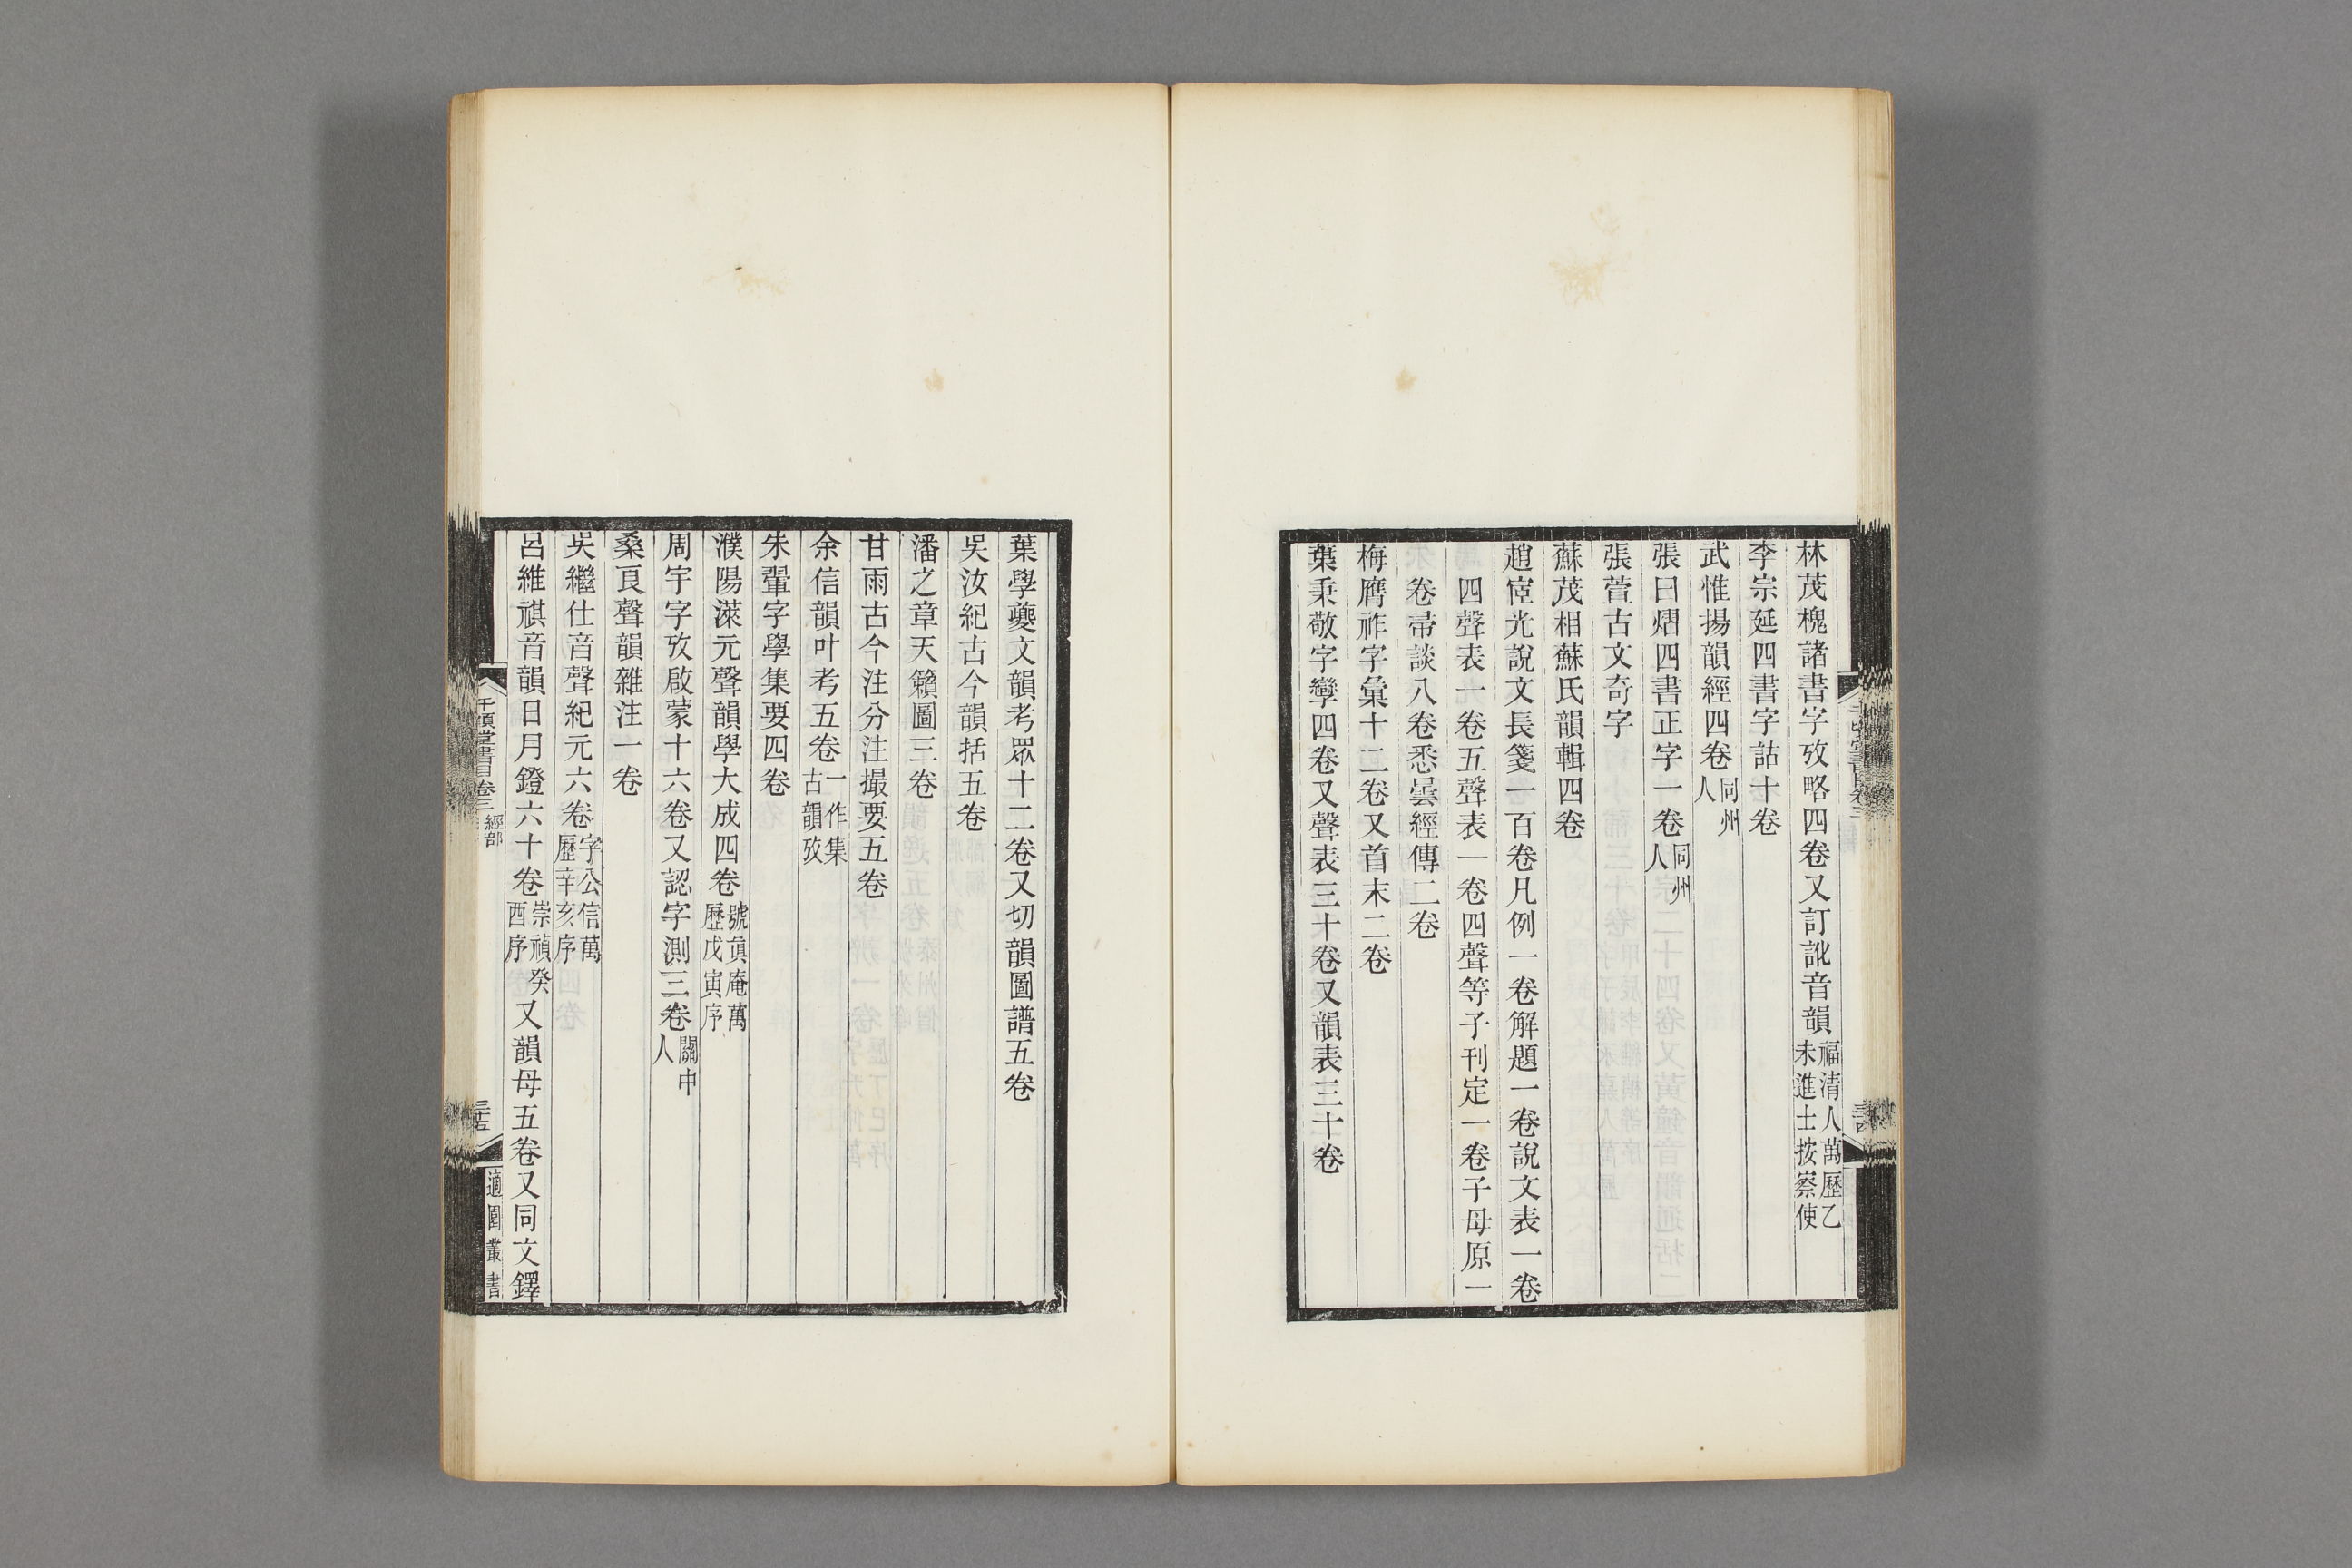 林茂槐諸書字攷略四卷又訂訛音韻福清人萬歷乙未進士按察使
李宗延四書字詁十卷
武惟揚韻經四卷同州人
張曰熠四書正字一卷同州人
張萱古文奇字
蘇茂相蘇氏韻輯四卷
趙宧光說文長箋一百卷凡例一卷解題一卷說文表一卷
四聲表一卷五聲表一卷四聲等子刊定一卷子母原一
卷帚談八卷悉曇經傳二卷
梅膺祚字彙十二卷又首末二卷
葉秉敬字孿四卷又聲表三十卷又韻表三十卷
葉學夔文韻考眾十二卷又切韻圖譜五卷
吳汝紀古今韻括五卷
潘之章天籟圖三卷
甘雨古今注分注撮要五卷
余信韻叶考五卷一作集古韻攷
朱翬字學集要四卷
濮陽淶元聲韻學大成四卷號眞庵萬歷戊寅序
周宇字攷啟蒙十六卷又認字測三卷關中人
桑㒵聲韻雜注一卷
吳繼仕音聲紀元六卷字公信萬歷辛亥序
呂維祺音韻日月鐙六十卷崇禎癸酉序又韻母五卷又同文鐸
千頃堂書目卷三 經部
三十五
適園叢書